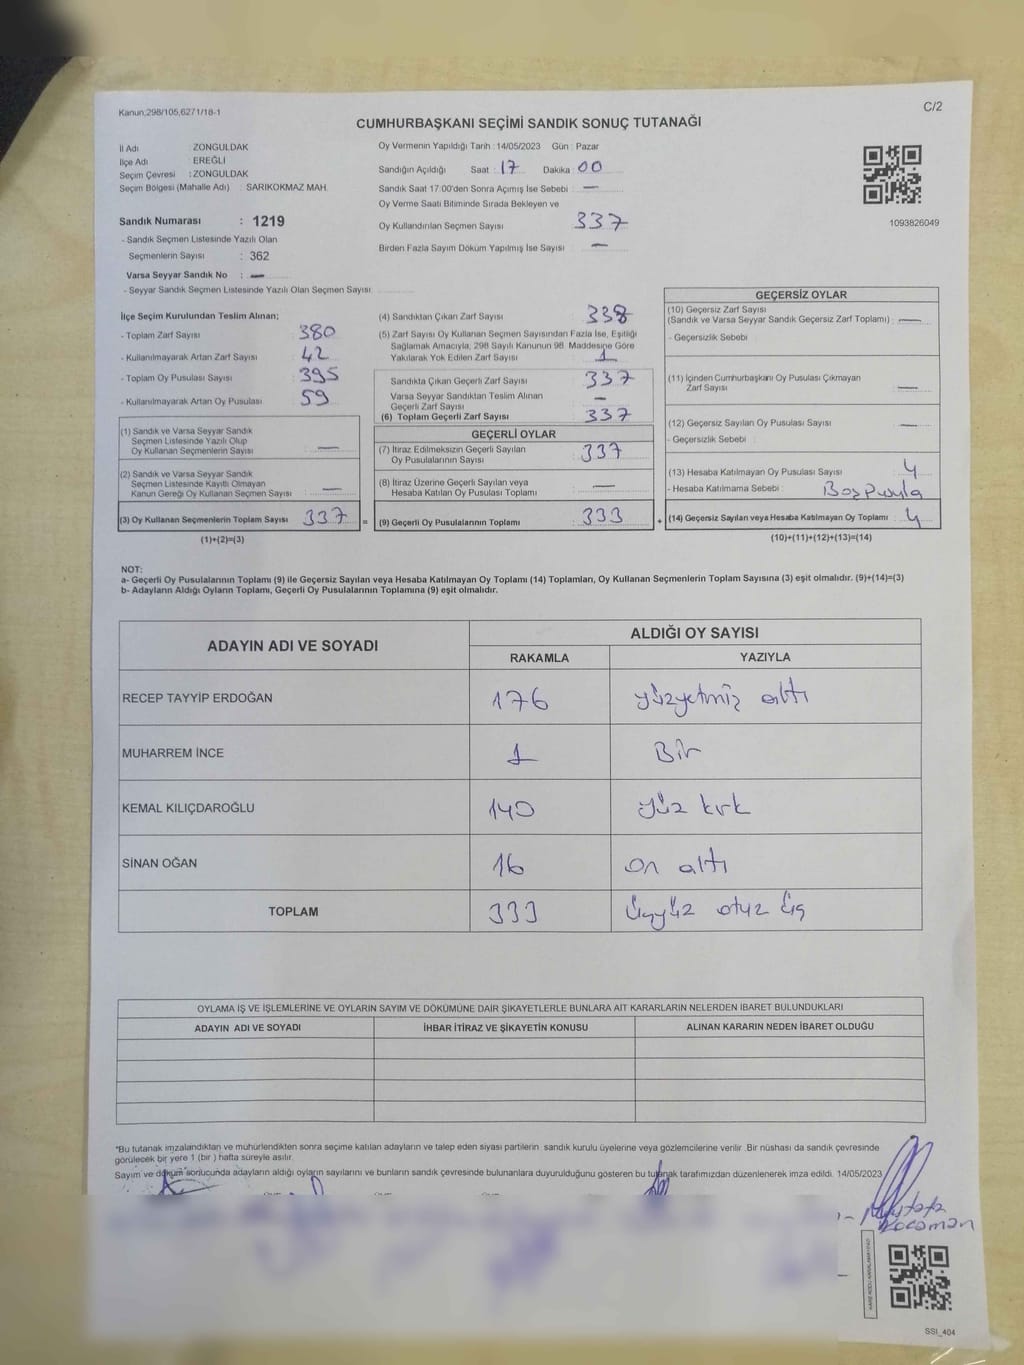 Kanun,298/105,6271/18-1
C/2
CUMHURBAŞKANI SEÇİMİ SANDIK SONUÇ TUTANAĞI
İl Adı : ZONGULDAK
İlçe Adı : EREĞLİ
Seçim Çevresi : ZONGULDAK
Seçim Bölgesi (Mahalle Adı) : SARIKOKMAZ MAH.
Sandık Numarası : 1219
- Sandık Seçmen Listesinde Yazılı Olan
Seçmenlerin Sayısı : 362
Varsa Seyyar Sandık No : —
- Seyyar Sandık Seçmen Listesinde Yazılı Olan Seçmen Sayısı:
Oy Vermenin Yapıldığı Tarih : 14/05/2023 Gün : Pazar
Sandığın Açıldığı Saat : 17 Dakika : 00
Sandık Saat 17:00'den Sonra Açımış İse Sebebi : —
Oy Verme Saati Bitiminde Sırada Bekleyen ve
Oy Kullandırılan Seçmen Sayısı : 337
Birden Fazla Sayım Döküm Yapılmış İse Sayısı : —
1093826049
İlçe Seçim Kurulundan Teslim Alınan;
- Toplam Zarf Sayısı : 380
- Kullanılmayarak Artan Zarf Sayısı : 42
- Toplam Oy Pusulası Sayısı : 395
- Kullanılmayarak Artan Oy Pusulası : 59
(1) Sandık ve Varsa Seyyar Sandık
Seçmen Listesinde Yazılı Olup
Oy Kullanan Seçmenlerin Sayısı : —
(2) Sandık ve Varsa Seyyar Sandık
Seçmen Listesinde Kayıtlı Olmayan
Kanun Gereği Oy Kullanan Seçmen Sayısı : —
(3) Oy Kullanan Seçmenlerin Toplam Sayısı : 337
(1)+(2)=(3)
(4) Sandıktan Çıkan Zarf Sayısı : 338
(5) Zarf Sayısı Oy Kullanan Seçmen Sayısından Fazla İse, Eşitliği
Sağlamak Amacıyla, 298 Sayılı Kanunun 98. Maddesine Göre
Yakılarak Yok Edilen Zarf Sayısı : 1
Sandıkta Çıkan Geçerli Zarf Sayısı : 337
Varsa Seyyar Sandıktan Teslim Alınan
Geçerli Zarf Sayısı : —
(6) Toplam Geçerli Zarf Sayısı : 337
GEÇERLİ OYLAR
(7) İtiraz Edilmeksizin Geçerli Sayılan
Oy Pusulalarının Sayısı : 337
(8) İtiraz Üzerine Geçerli Sayılan veya
Hesaba Katılan Oy Pusulası Toplamı : —
= (9) Geçerli Oy Pusulalarının Toplamı : 333
GEÇERSİZ OYLAR
(10) Geçersiz Zarf Sayısı
(Sandık ve Varsa Seyyar Sandık Geçersiz Zarf Toplamı) : —
- Geçersizlik Sebebi :
(11) İçinden Cumhurbaşkanı Oy Pusulası Çıkmayan
Zarf Sayısı : —
(12) Geçersiz Sayılan Oy Pusulası Sayısı : —
- Geçersizlik Sebebi :
(13) Hesaba Katılmayan Oy Pusulası Sayısı : 4
- Hesaba Katılmama Sebebi : Boş Pusula
+ (14) Geçersiz Sayılan veya Hesaba Katılmayan Oy Toplamı : 4
(10)+(11)+(12)+(13)=(14)
NOT:
a- Geçerli Oy Pusulalarının Toplamı (9) ile Geçersiz Sayılan veya Hesaba Katılmayan Oy Toplamı (14) Toplamları, Oy Kullanan Seçmenlerin Toplam Sayısına (3) eşit olmalıdır. (9)+(14)=(3)
b- Adayların Aldığı Oyların Toplamı, Geçerli Oy Pusulalarının Toplamına (9) eşit olmalıdır.
ADAYIN ADI VE SOYADI
ALDIĞI OY SAYISI
RAKAMLA YAZIYLA
RECEP TAYYİP ERDOĞAN 176 yüzyetmiş altı
MUHARREM İNCE 1 Bir
KEMAL KILIÇDAROĞLU 140 yüz kırk
SİNAN OĞAN 16 on altı
TOPLAM 333 Üçyüz otuz üç
OYLAMA İŞ VE İŞLEMLERİNE VE OYLARIN SAYIM VE DÖKÜMÜNE DAİR ŞİKAYETLERLE BUNLARA AİT KARARLARIN NELERDEN İBARET BULUNDUKLARI
ADAYIN ADI VE SOYADI İHBAR İTİRAZ VE ŞİKAYETİN KONUSU ALINAN KARARIN NEDEN İBARET OLDUĞU
*Bu tutanak imzalandıktan ve mühürlendikten sonra seçime katılan adayların ve talep eden siyasi partilerin sandık kurulu üyelerine veya gözlemcilerine verilir. Bir nüshası da sandık çevresinde
görülecek bir yere 1 (bir) hafta süreyle asılır.
Sayım ve döküm sonucunda adayların aldığı oyların sayılarını ve bunların sandık çevresinde bulunanlara duyurulduğunu gösteren bu tutanak tarafımızdan düzenlenerek imza edildi. 14/05/2023
Mustafa
Kocaman
SSI_404